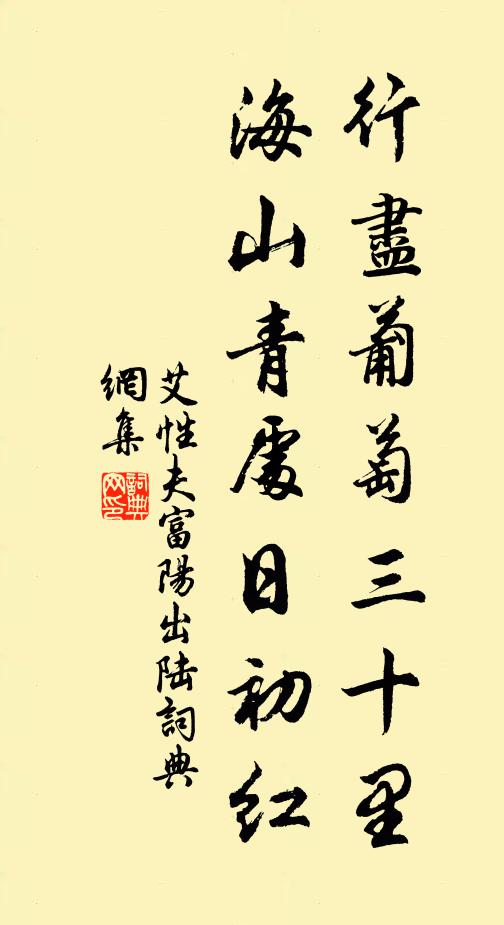 行盡葡萄三十里
海山青處日初紅
艾性夫富陽出陆詞典
網集
詞典
网印